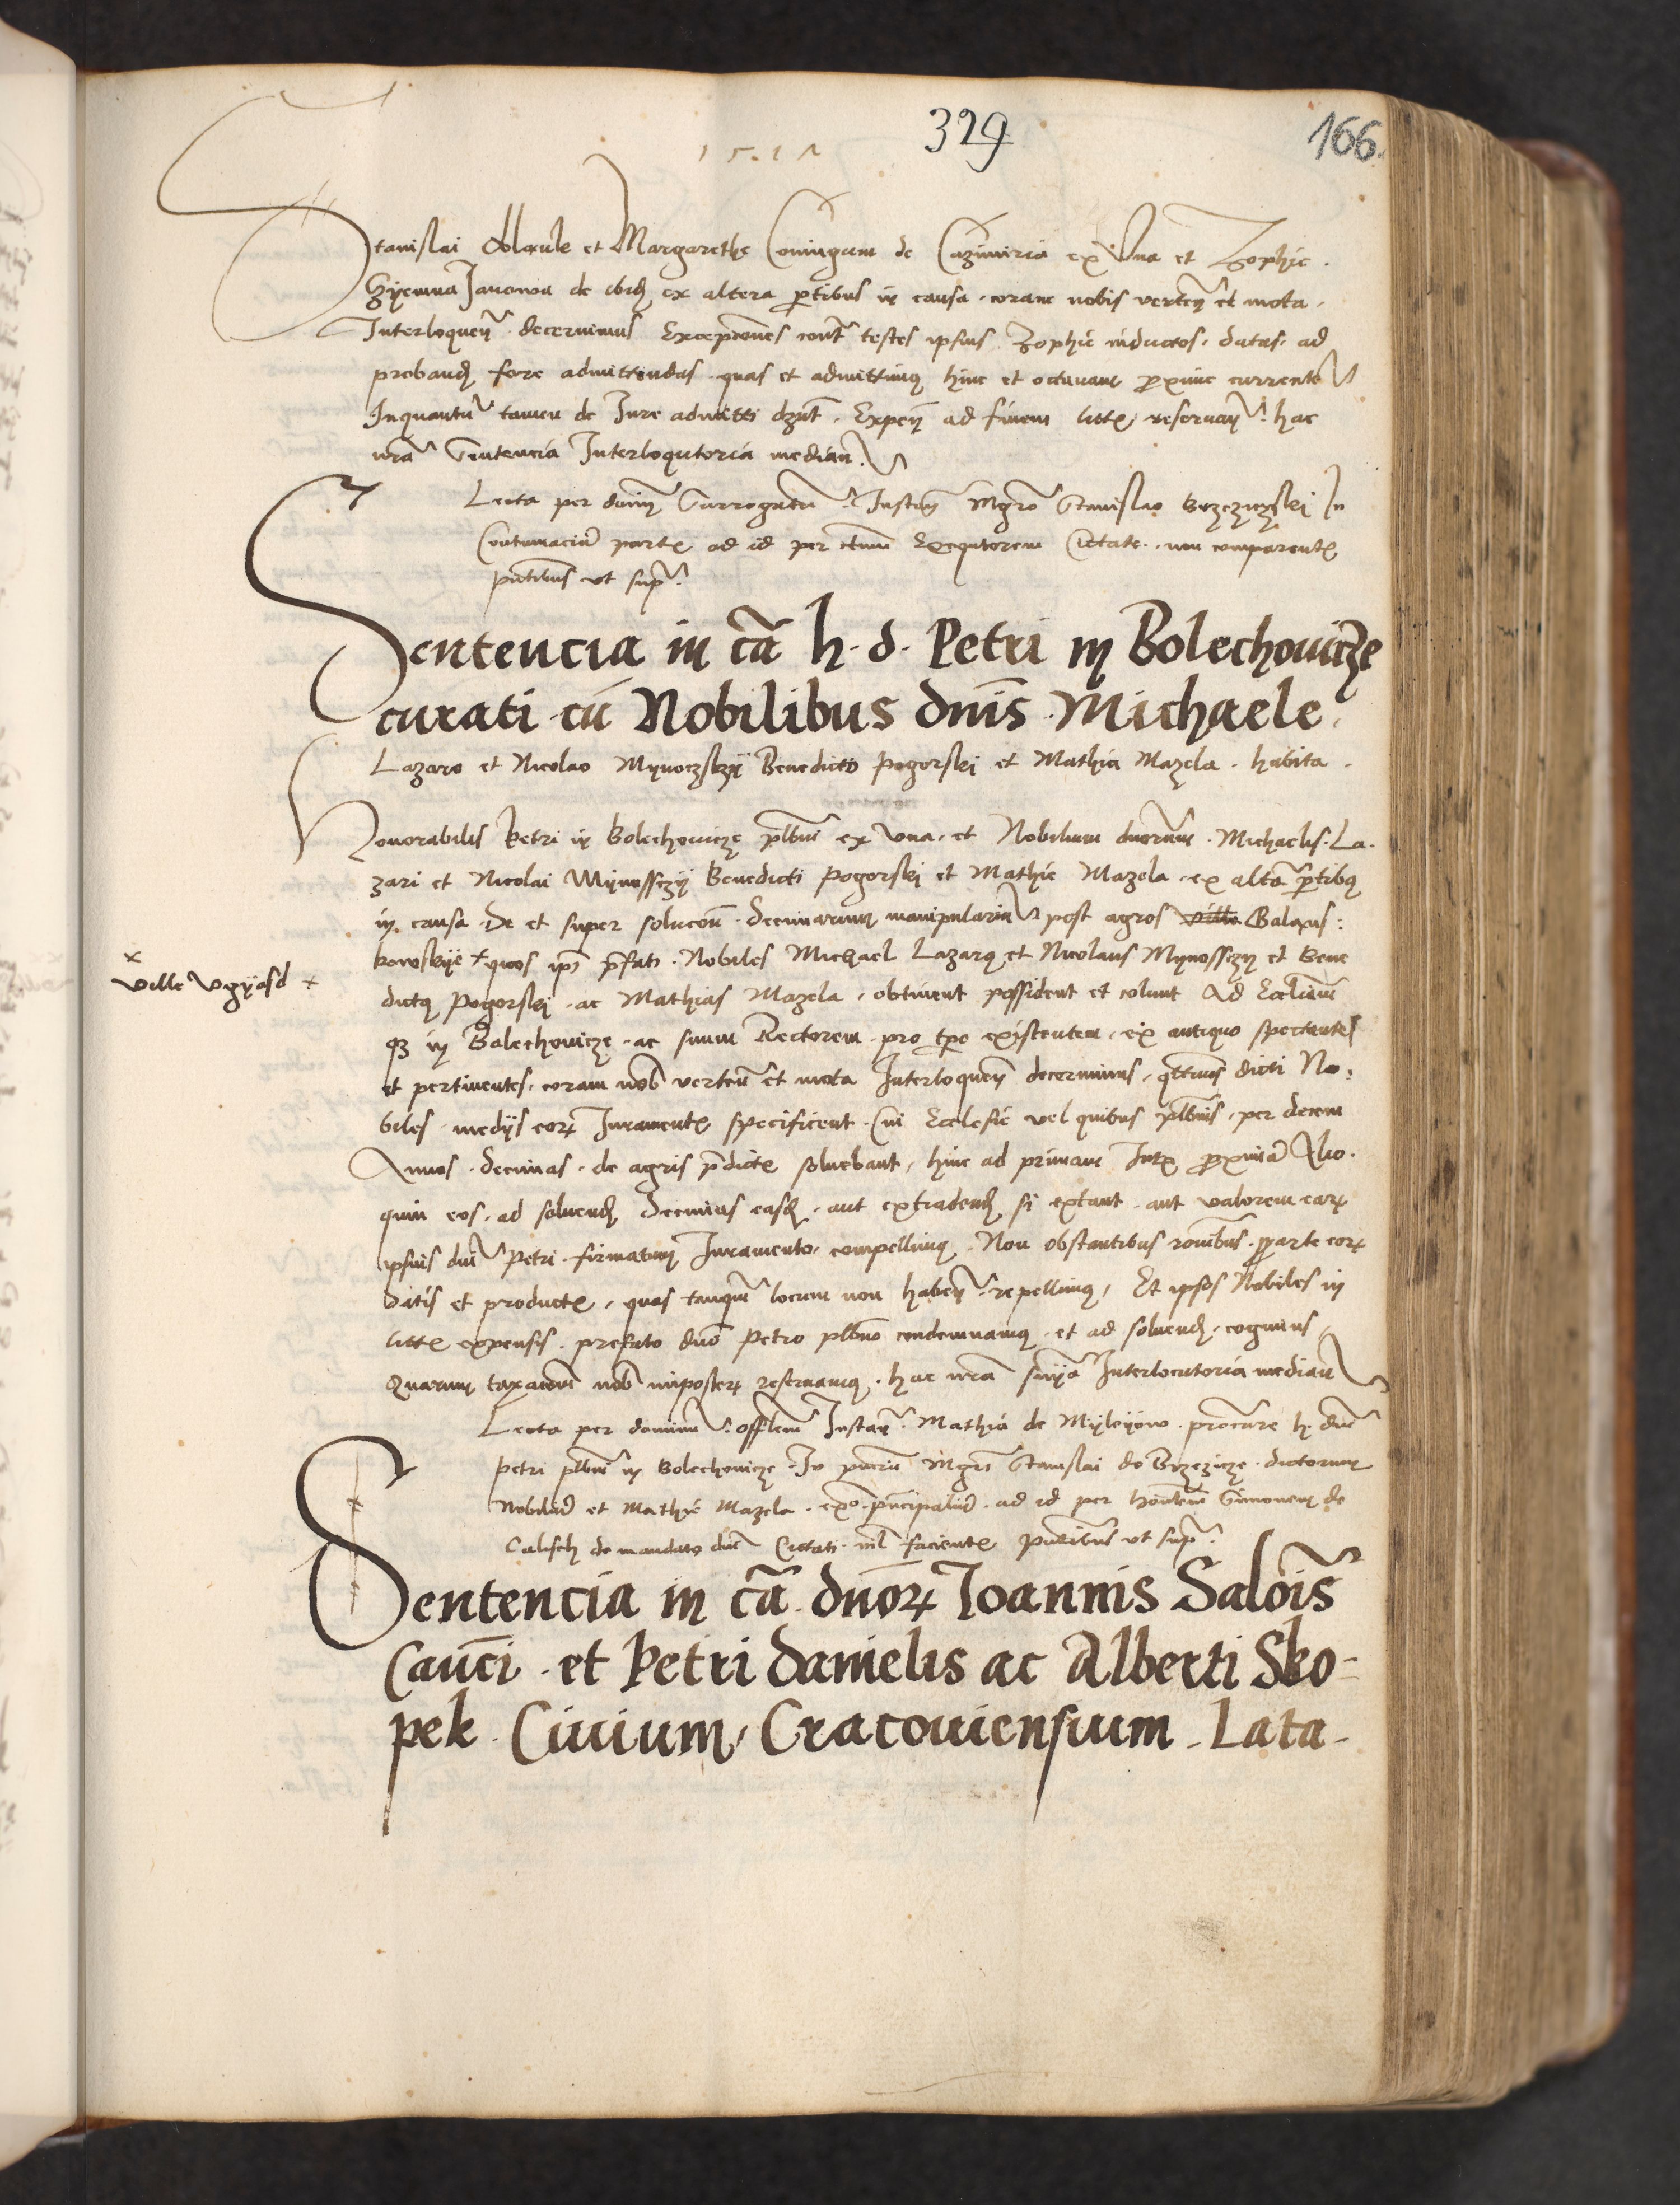 329
166.
Stanislai et Margarethe Coniugum de Cazimiria ex Vna et Zophie.
Janowa de ibid ex altera ptibus in causa. coram nobis verten et mota.
Interloquen decernimus Excepcones contra testes ipsius Zophie inductos. datas. ad
proband fore admittendas. quas et admittimq hinc et octavam proxime currente
Inquantum tamen de Jure admitti dznt. Expens ad finem litte reservan. hac
nra Sentencia Interloqutoria median.
Lecta per dnum Surrogatum Instan Mgro Stanislao Brzezyczski In
Contumaciam parte ad id per Exequtorem Citate. non comparente
pntibus vt supra.
Sentencia in ca h. d. Petri in Bolechouicze
curati cu Nobilibus dnis Michaele.
Lazaro et Nicolao Benedicto Pogorski et Mathia Mazela. habita.
Honorabilis Petri in Bolechouicze plbni ex Vna. et Nobilium duorum. Michaelis. La.
zari et Nicolai Benedicti Pogorski et Mathie Mazela. ex alta ptibq
in causa. De et super solucon. Decimarum manipularium post agros ville Balaxus:
kowskije + quos ipsi prfati. Nobiles Michael Lazarq et Nicolaus et Bene
x
ville Vgyasd +
dictq Pogorski. ac Mathias Mazela. obtinent possident et colunt Ad Eccliam
in Balechouicze. ac suum Rectorem. pro tpe existentem. ex antiquo spectantes
et pertinentes. coram nob verten et mota Interloquen decernimus, dicti No:
biles. medijs eor Jurament specificent. Cui Ecclesie vel quibus plbnis, per decem
Annos. decimas. de agris pdicte soluebant, hinc ad primam Jur proxima Alio.
quin eos. ad soluend Decimas easd. aut extradend si extant. aut valorem ear
ipsius dni Petri. firmatum Juramento. compellimq. Non obstantibus ronibus. parte eor
datis et producte, quas tanqm locum non haben repellimq, Et ipsos Nobiles in
litte expensis. prefato dno Petro plbno condemnamq. et ad soluend. cogimus,
Quarum taxacom nob imposter reseruamq. hac nra snia Interlocutoria median
Lecta per dominum offlem Instan. Mathia de Myleyow. procure h. dni
Petri plbni in Bolechouicze. In pncia Mgri Stanislai de Brzezicze. dictorum
Nobilium et Mathie Mazela. principalium. ad id per Simonem de
Calisch de mandato dni Citati. nil faciente pntibus vt supra.
Sentencia in ca. dnor Joannis Salois
Canci. et Petri Danielis ac Alberti Sko-
pek. Ciuium, Cracouiensium. Lata-